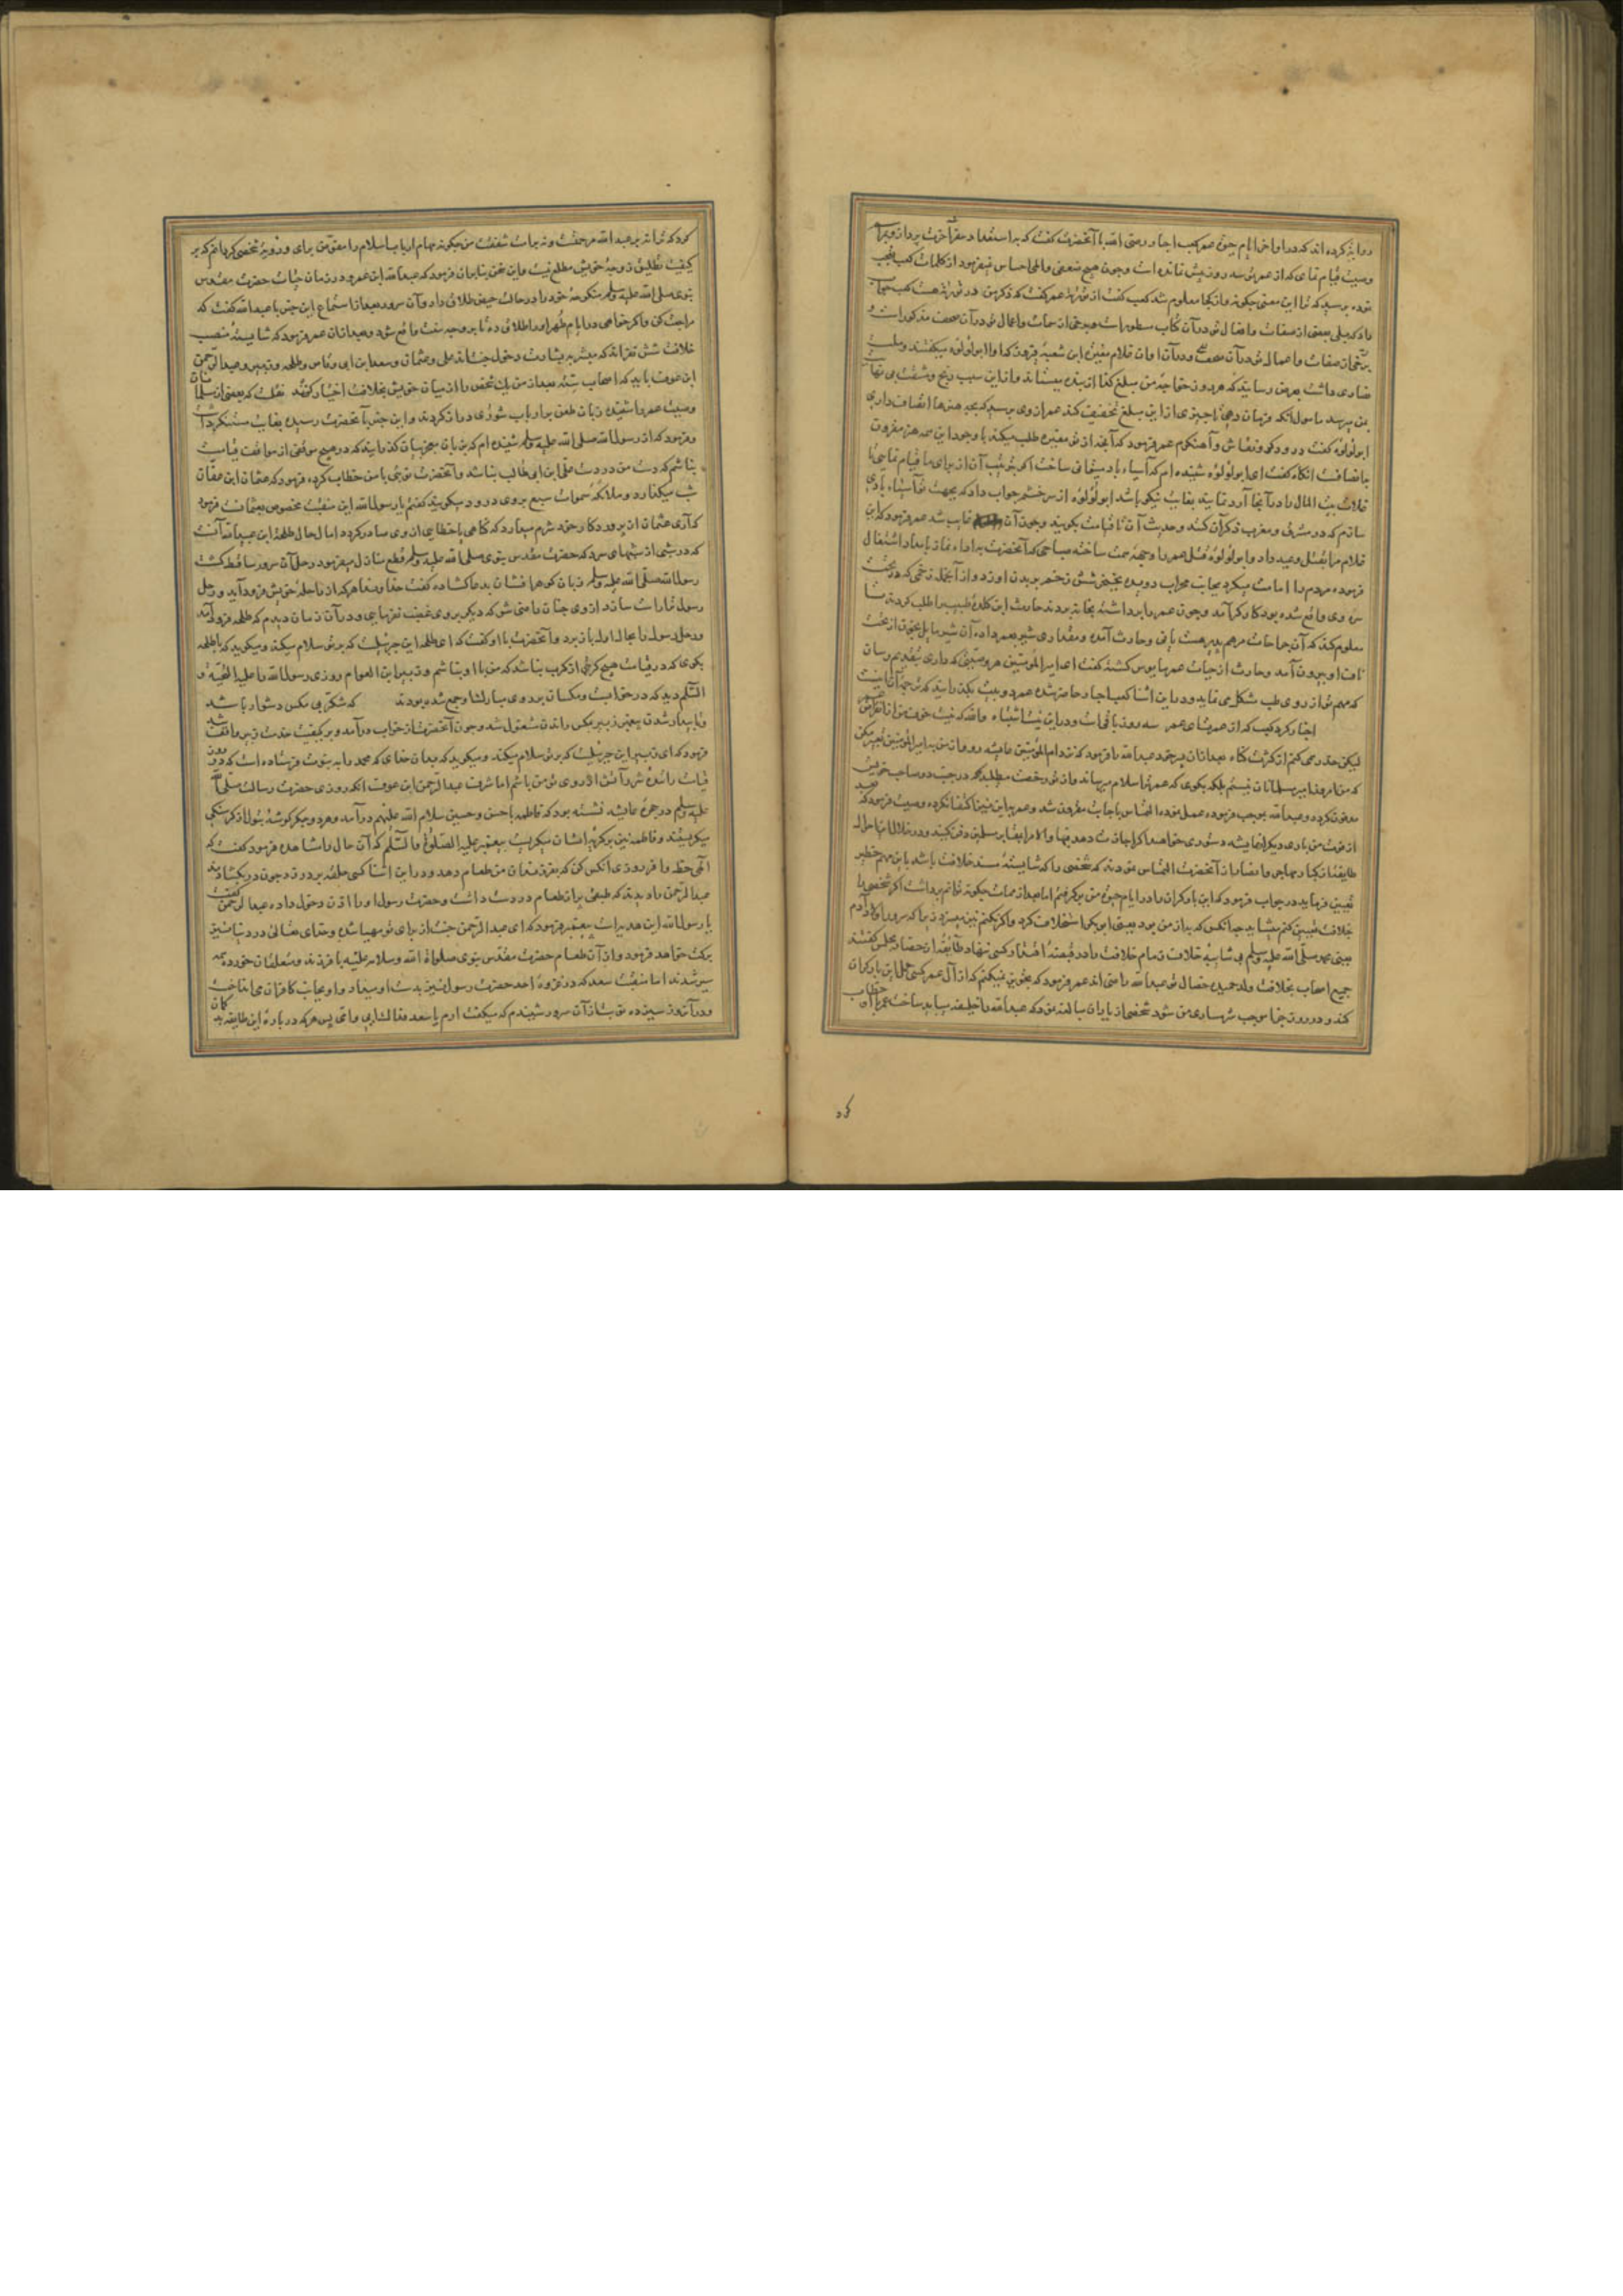 روایة کرده اند که در اواخر ایام حیوة عمر کعب احبار رضی الله با آنحضرت گفت که باستعداد سفر آخرت پرداز و برای
وصیت قیام نمای که از عمر تو سه روز بیش نمانده است و چون هیچ ضعفی و المی احساس نمیفرمود از کلمات کعب تعجب
نموده پرسید که ترا این معنی چگونه و از کجا معلوم شد کعب گفت از توریة عمر گفت که ذکر من در توریة هست کعب جواب
داد که بلی بعضی از صفات و افعال تو در آن کتاب مسطورات و برخی از حسات و اعمال تو در آن صحف مذکور است و
برخی از صفات و اعمال تو در آن صحف و در آن اوان غلام مغیرة ابن شعبه فیروز که او را ابولولوه میگفتند و ملت
نصاری داشت بعرض رسانید که هر روز خواجه من مبلغ کذا از بنده میستاند و از این سبب رنج و مشقت بی نهایت
بمن میرسد مامول آنکه فرمان دهی تا چیزی از این مبلغ تخفیف کند عمر از وی پرسید که بچه هنرها اتصاف داری
ابولولوه گفت درودگر و نقاش و آهنگرم عمر فرمود که آنچه از تو مغیره طلب میکند با وجود این سه هنر مقرون
بانصافست آنگاه گفت ای ابولولوه شنیده ام که آسیاء باد میتوانی ساخت اگر بترتیب آن از برای ما قیام نمایی تا
غلات بیت المال را در آنجا آرد نمایند بغایت نیکو باشد ابولولوه از سر خشم جواب داد که بجهت تو آسیاء بادی
سازم که در مشرق و مغرب ذکر آن کنند و حدیث آن تا قیامت بگویند و چون آن غایب شد عمر فرمود که این
غلام مرا بقتل وعید داد و ابولولوه قتل عمر را وجهه همت ساخته صباحی که آنحضرت باداء نماز بامداد اشتغال
فرموده مردم را امامت میکرد بجانب محراب دویده بخنجر شش زخم بر بدن او زد و از آنجمله زخمی که در تحت
سره وی واقع شده بود کارگر آمد و چون عمر را برداشته بخانه بردند حارث ابن کلده طبیب را طلب کردند تا
معلوم کند که آن جراحات مرهم پذیر هست یا نی و حارث آمده و مقداری شیر بعمر داده آن شیر مایل بخون از تحت
ناف او بیرون آمد و حارث از حیات عمر مایوس گشته گفت ای امیر المومنین هر وصیتی که داری بتقدیم رسان
که مهم تو از روی طب مشکل می نماید و در این اثنا کعب احبار حاضر شده عمر دو بیت گفت
اخبار کرد کعب که از عمرهای عمر سه روز باقیات و در این نیست اشتباه والله که نیست خوف من از انقراض عمر
لیکن حذر همی کنم از کثرت گناه بعد از آن پسر خود عبدالله را فرمود که نزد ام المومنین عایشه رو و از من بامیر المومنین تعبیر مکن
که من امروز امیر مسلمانان نیستم بلکه بگوی که عمر ترا سلام میرساند و از تو رخصت میطلبد که در جنب دو صاحب خویش
مدفون گردد و عبدالله بموجب فرموده عمل نموده التماس باجابت مقرون شد و عمر باین نیز اکتفا نکرده وصیت فرمود که بعد
از فوت من باری دیگر از عایشه دستوری خواهید اگر اجازت دهد فبها والا مرا بمقابر مسلمین دفن کنید و در خلال این احوال
طایفه از کبار مهاجر و انصار از آنحضرت التماس نمودند که شخصی را که شایسته مسند خلافت باشد باین مهم خطیر
تعیین فرماید در جواب فرمود که این بار گران را در ایام حیوة من برگرفتم اما بعد از ممات چگونه توانم برداشت اگر شخصی را
بخلافت تعیین کنم میشاید چه آنکس که به از من بود یعنی ابوبکر استخلاف کرد و اگر نکنم نیز میسزد زیرا که سرور اولاد آدم
یعنی محمد صلی الله علیه و سلم بی شایبه خلاف زمام خلافت را در قبضه اختیار کسی ننهاد طایفه از حضار مجلس گفتند
جمیع اصحاب بخلافت ولد حمیده خصال تو عبدالله راضی اند عمر فرمود که تجویز نمیکنم که از آل عمر کسی حمل این بار گران
کند و در روز جزا موجب شرمساری من شود شخصی از یاران مبالغه نمود که عبدالله را خلیفه میباید ساخت عمر با او خطاب
کرد
کرد که ترا نه بر عبدالله مرحمت و نه بر امت شفقت من چگونه مهام ارباب اسلام را مفوض برای و رویة شخصی گردانم که بر
کیفیت تطلیق زوجه خویش مطلع نیست و این سخن بنابر آن فرمود که عبدالله ابن عمر در زمان حیات حضرت مقدس
نبوی صلی الله علیه و سلم منکوحه خود را در حالت حیض طلاق داد و آن سرور بعد از استماع این خبر با عبدالله گفت که
مراجعت کن و اگر خواهی در ایام طهر او را طلاق ده تا بر وجه سنت واقع شود و بعد از آن عمر فرمود که شایسته منصب
خلافت شش نفراند که مبشر به بشارت دخول جنت اند علی و عثمان و سعد ابن ابی وقاص و طلحه و زبیر و عبدالرحمن
ابن عوف باید که اصحاب سته بعد از من یک شخص را از میان خویش بخلافت اختیار کنند نقلست که بعضی از مسلمانان
وصیت عمر را شنیده زبان طعن بر ارباب شوری دراز کردند و این خبر با آنحضرت رسیده بغایت مستنکر داشت
و فرمود که از رسول الله صلی الله علیه و سلم شنیده ام که بزبان معجز بیان گذرانید که در هیچ موقفی از مواقف قیامت
نباشم که دست من در دست علی ابن ابی طالب نباشد و آنحضرت نوبتی با من خطاب کرده فرمود که عثمان ابن عفان
شب میگذارد و ملائکه سموات سبع بروی درود میگویند گفتم یا رسول الله این منقبت مخصوص بعثمانست فرمود
که آری عثمان از پروردگار خود شرم میدارد که گاهی یا خطایی از وی صادر گردد اما حال طلحة ابن عبیدالله آنست
که در شبی از شبهای سرد که حضرت مقدس نبوی صلی الله علیه و سلم قطع منازل میفرمود رحل آن سرور ساقط گشت
رسول الله صلی الله علیه و سلم زبان گوهر افشان بدعا گشاده گفت خداوندا هر که از راحله خویش فرود آید و رحل
رسول ترا راست سازد از وی چنان راضی شو که دیگر بروی غضب نفرمایی و در آن زمان دیدم که طلحه فرود آمد
و رحل رسول را بحال اول باز برد و آنحضرت با او گفت که ای طلحه این جبرئیلست که بر تو سلام میکند و میگوید که با طلحه
بگوی که در قیامت هیچ کربی از کرب نباشد که من با او نباشم و زبیر ابن العوام روزی رسول الله را علیه التحیة و
السلم دید که در خوابست و مگسان بر روی مبارکش جمع شده بودند که شکر بی مگس دشوار باشد
و تا بیدار شدن پیغمبر زبیر بمگس راندن مشغول شد و چون آنحضرت از خواب درآمد و بر کیفیت خدمت زبیر واقف شد
فرمود که ای زبیر این جبرئیلست که بر تو سلام میکند و میگوید که بدان خدای که محمد را به نبوت فرستاده است که در روز
قیامت رانندة شرر آتش از روی تو من باشم اما شرف عبدالرحمن ابن عوف آنکه روزی حضرت رسالت صلی الله
علیه و سلم در حجرة عایشه نشسته بود که فاطمه با حسن و حسین سلام الله علیهم درآمد و هر دو جگر گوشه بتول از گرسنگی
میگریستند و فاطمه نیز بر گریه ایشان میگریست پیغمبر علیه الصلوة والسلم که آن حال را مشاهده فرمود گفت که
الهی حظ وافر روزی آنکس کن که بفرزندان من طعام دهد و در این اثنا کسی حلقه بر در زد چون در بگشادند
عبدالرحمن را دیدند که طبقی پر از طعام در دست داشت و حضرت رسول او را اذن دخول داده عبدالرحمن گفت
یا رسول الله این هدیه است پیغمبر فرمود که ای عبدالرحمن جنت از برای تو مهیا شده و خدای تعالی در دنیا نیز
برکت خواهد فرمود و از آن طعام حضرت مقدس نبوی صلواة الله و سلامه علیه با فرزند و متعلقان خورده همه
سیر شدند اما منقبت سعد که در غزوة احد حضرت رسول تیر بدست او میداد و او بجانب کافران می انداخت
و در آن روز سیزده نوبت از آن سرور شنیدم که میگفت ارم یا سعد فداک ابی و امی پس هر که در باره این طایفه گمان بد